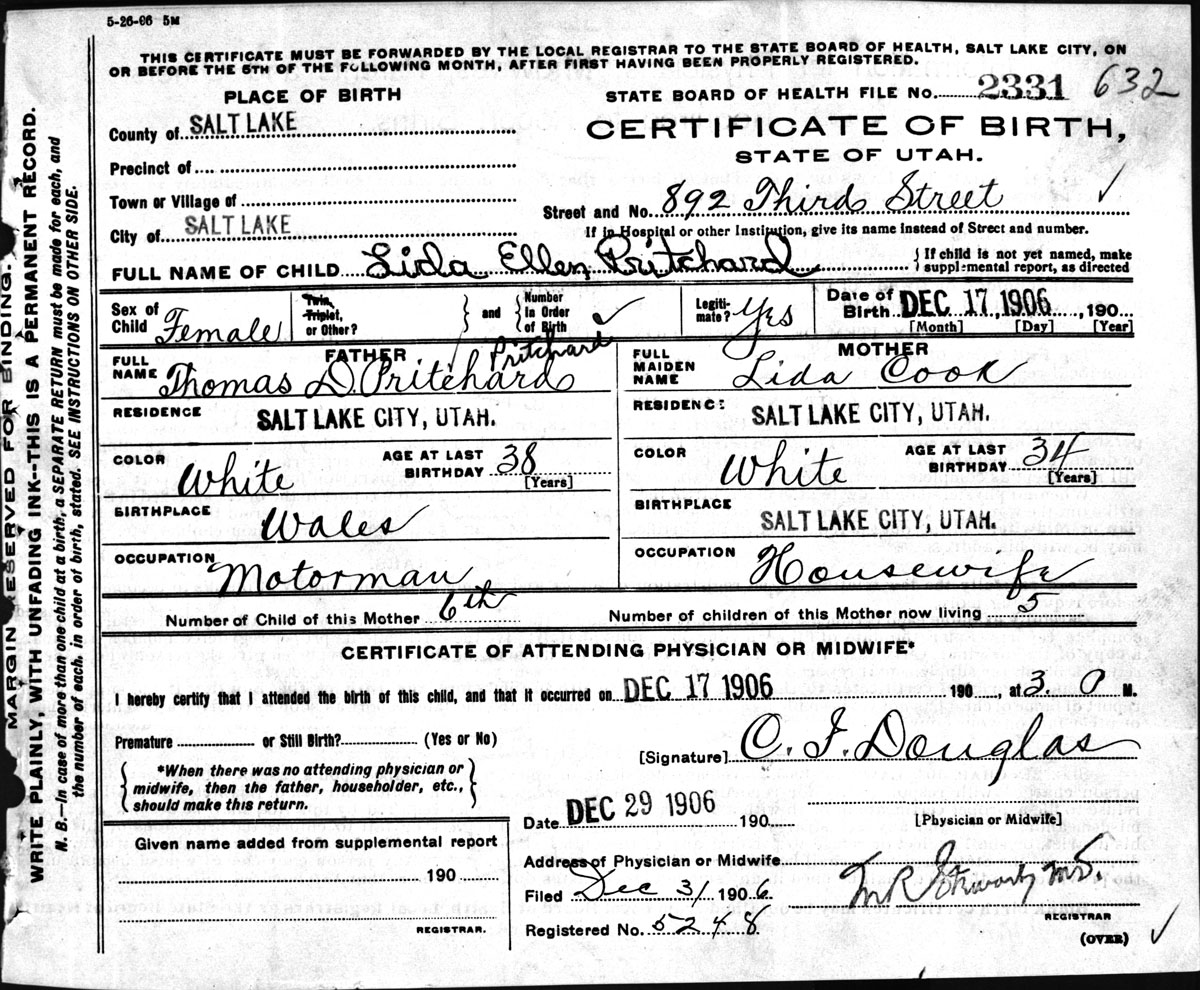 5-26-06 5M
THIS CERTIFICATE MUST BE FORWARDED BY THE LOCAL REGISTRAR TO THE STATE BOARD OF HEALTH, SALT LAKE CITY, ON
OR BEFORE THE 5TH OF THE FOLLOWING MONTH, AFTER FIRST HAVING BEEN PROPERLY REGISTERED.
PLACE OF BIRTH
STATE BOARD OF HEALTH FILE No. 2331 632
County of SALT LAKE
CERTIFICATE OF BIRTH,
STATE OF UTAH.
Precinct of
Town or Village of
Street and No. 892 Third Street
City of SALT LAKE
If in Hospital or other Institution, give its name instead of Street and number.
FULL NAME OF CHILD Lida Ellen Pritchard
{If child is not yet named, make
supplemental report, as directed
Sex of Child Female
Twin, Triplet, or Other? } and { Number In Order of Birth ✓
Legiti-mate? Yes
Date of Birth DEC 17 1906, 190
[Month] [Day] [Year]
FATHER
FULL NAME Thomas D. Pritchard
Pritchard
RESIDENCE SALT LAKE CITY, UTAH.
COLOR White
AGE AT LAST BIRTHDAY 38 [Years]
BIRTHPLACE Wales
OCCUPATION Motorman
MOTHER
FULL MAIDEN NAME Lida Cook
RESIDENCE SALT LAKE CITY, UTAH.
COLOR White
AGE AT LAST BIRTHDAY 34 [Years]
BIRTHPLACE SALT LAKE CITY, UTAH.
OCCUPATION Housewife
Number of Child of this Mother 6th
Number of children of this Mother now living 5
CERTIFICATE OF ATTENDING PHYSICIAN OR MIDWIFE*
I hereby certify that I attended the birth of this child, and that it occurred on DEC 17 1906 190, at 3. M.
Premature or Still Birth? (Yes or No)
{*When there was no attending physician or
midwife, then the father, householder, etc.,
should make this return.}
[Signature] C. F. Douglas
Date DEC 29 1906 190
[Physician or Midwife]
Given name added from supplemental report
190
REGISTRAR.
Address of Physician or Midwife
Filed Dec 31 1906
Registered No. 5248
REGISTRAR
(OVER)
MARGIN RESERVED FOR BINDING.
WRITE PLAINLY, WITH UNFADING INK--THIS IS A PERMANENT RECORD.
N. B.—In case of more than one child at a birth, a SEPARATE RETURN must be made for each, and
the number of each, in order of birth, stated. SEE INSTRUCTIONS ON OTHER SIDE.